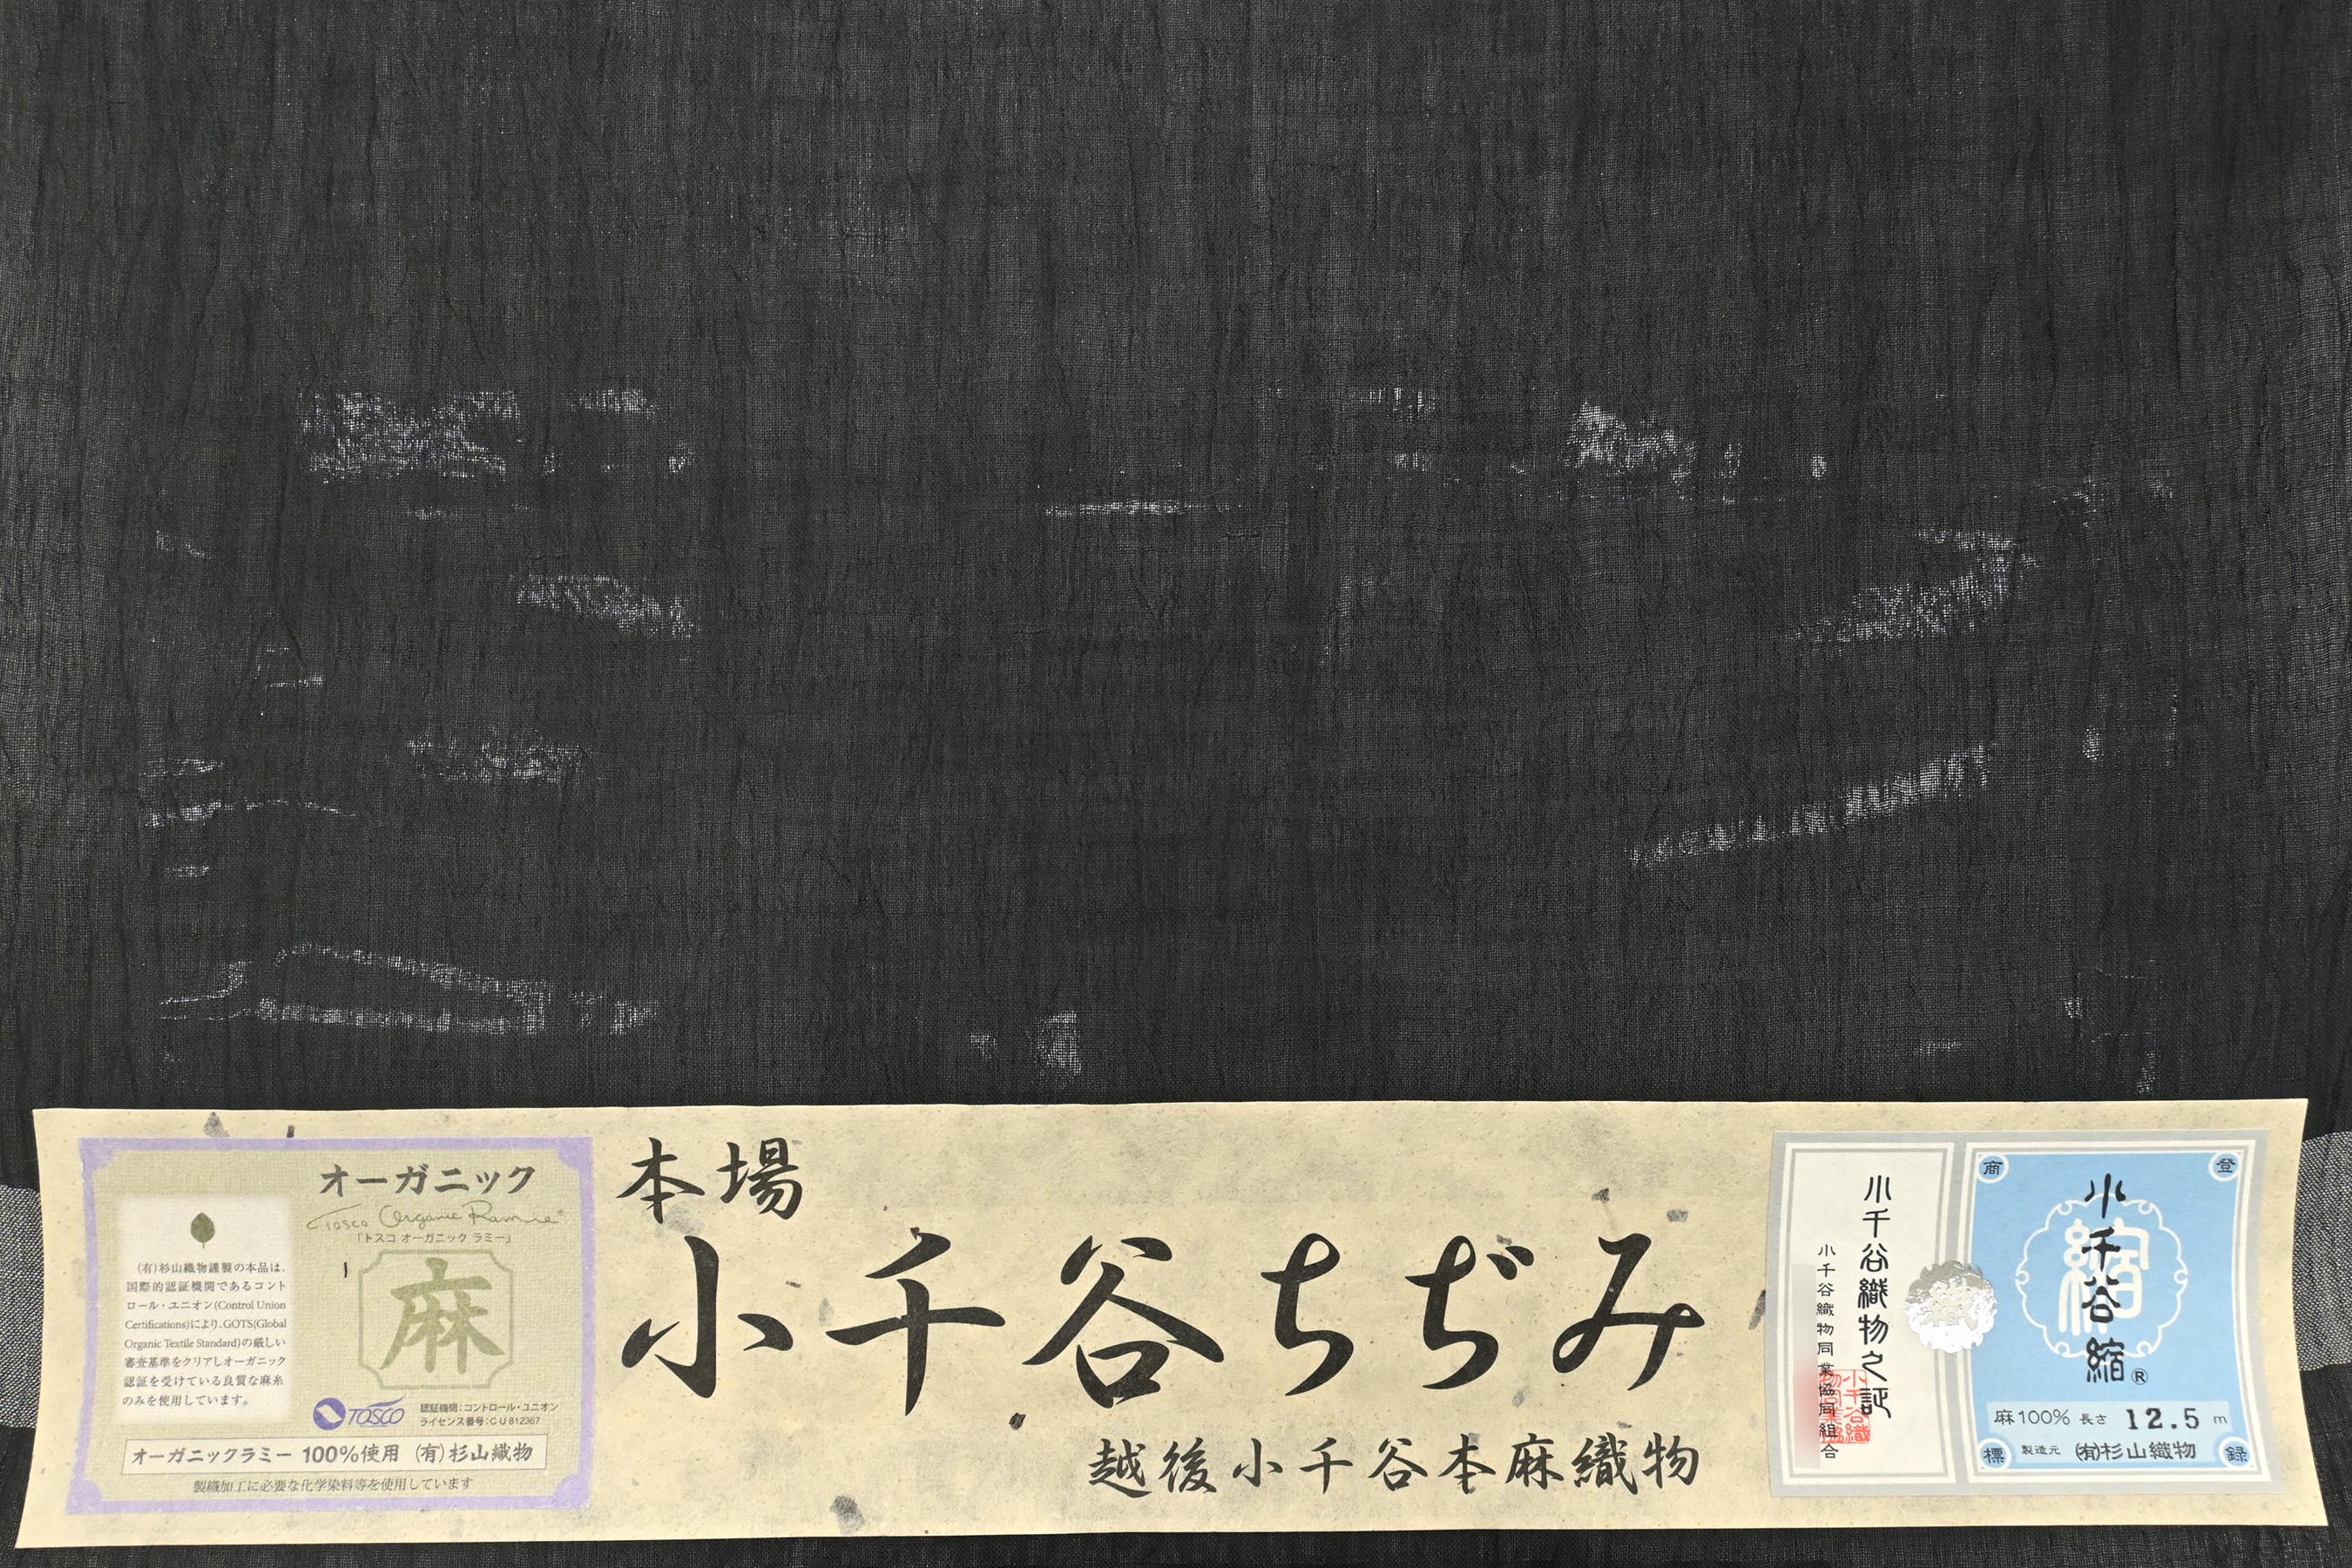 オーガニック
Tosco Organic Ramie
「トスコ オーガニック ラミー」
麻
(有)杉山織物謹製の本品は、
国際的認証機関であるコント
ロール・ユニオン(Control Union
Certifications)により、GOTS(Global
Organic Textile Standard)の厳しい
審査基準をクリアしオーガニック
認証を受けている良質な麻糸
のみを使用しています。
TOSCO
認証機関:コントロール・ユニオン
ライセンス番号:CU812367
オーガニックラミー 100%使用 (有)杉山織物
製織加工に必要な化学染料等を使用しています
本場
小千谷ちぢみ
越後小千谷本麻織物
小千谷織物之証
小千谷織物同業協同組合
商
登
標
録
縮
小千谷縮®
麻100% 長さ 12.5 m
製造元 (有)杉山織物